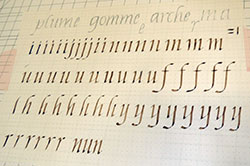 plume gomme arche
iiiiiijjjjiinunnnmm
uuuuuuuuuufffff
lhhhhhhyyyyyyyy
rrrrrr nun